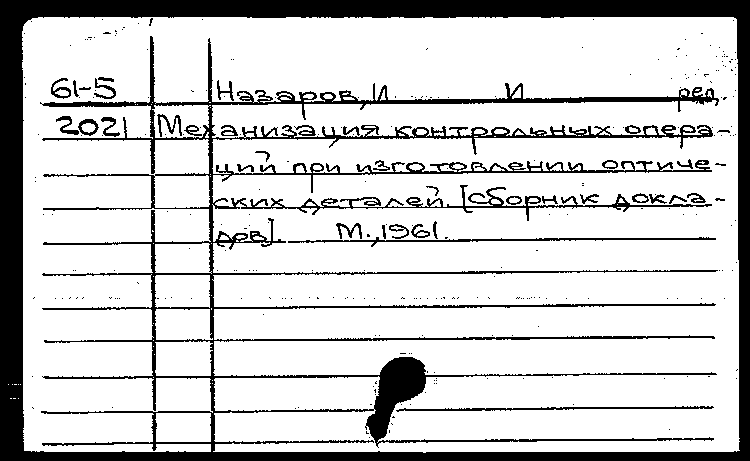 61-5 Назаров, И И ред.
2021 Механизация контрольных опера-
ций при изготовлении оптиче-
ских деталей. [Сборник докла-
дов]. М., 1961.